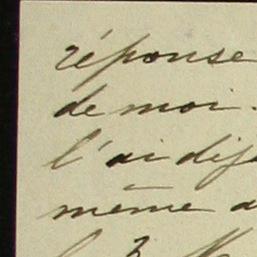 réponse
de moi.
l'ai dij
même a